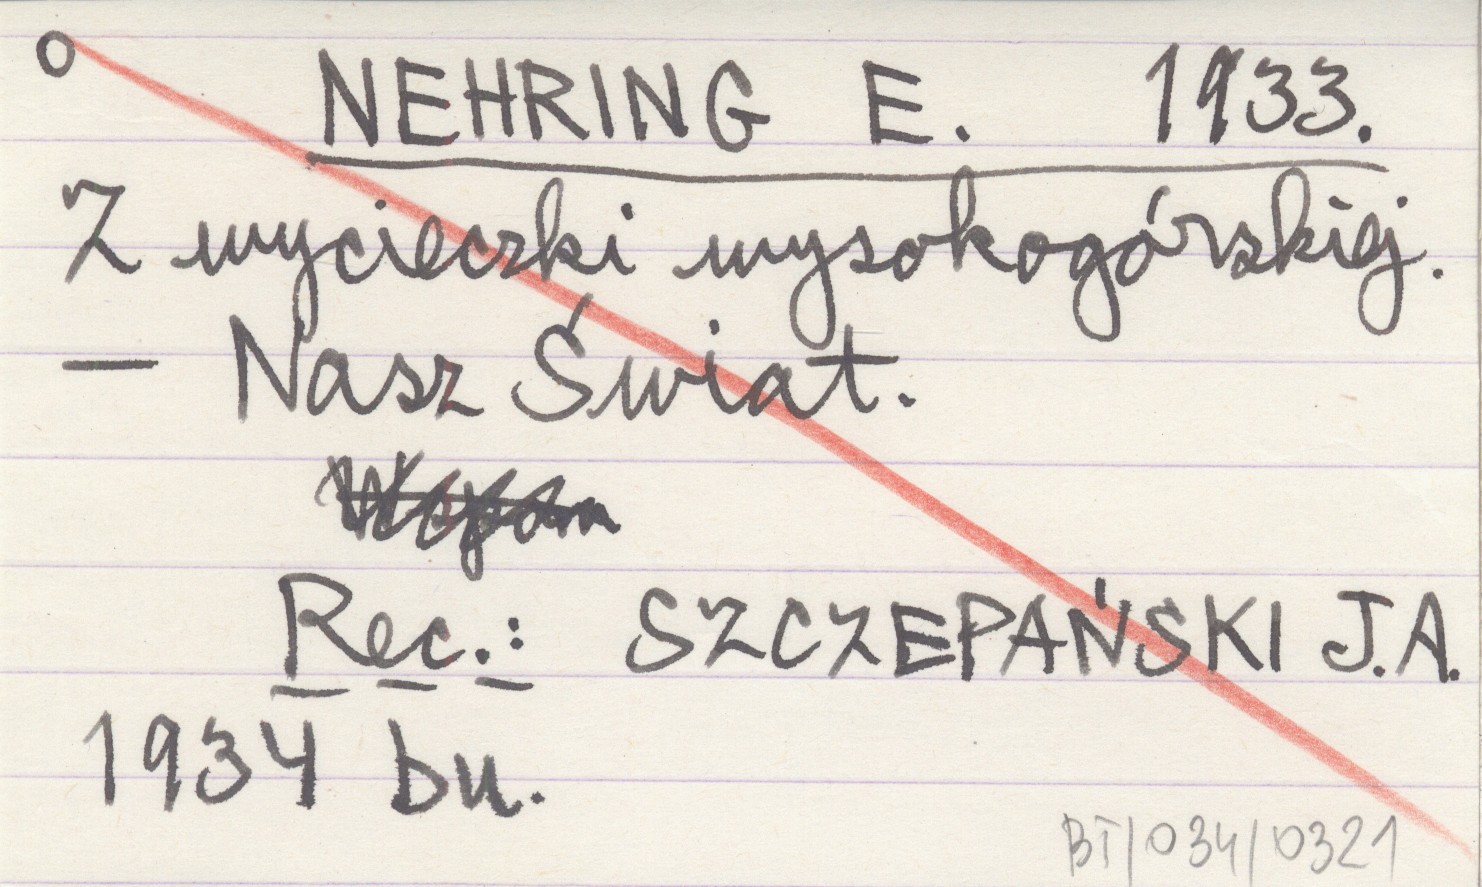 O NEHRING E. 1933.
Z wycieczki wysokogórskiej.
— Nasz Świat.
Rec.: SZCZEPAŃSKI J.A.
1934 bu.
BT/034/0321